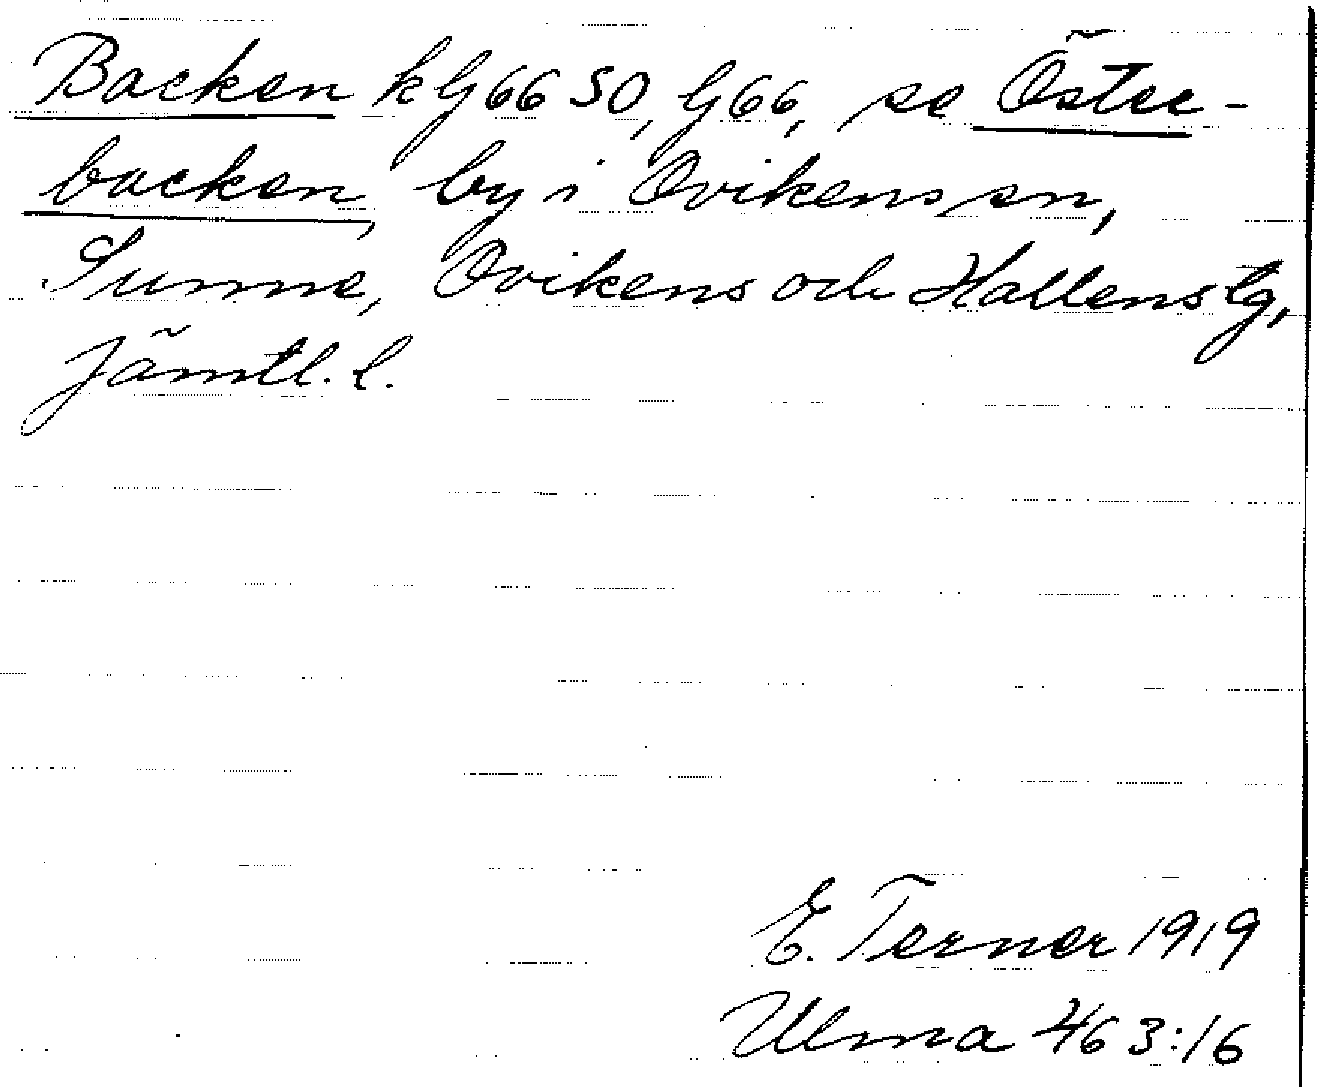 Backen k lj 66 50, lj 66, se Öster-
backen, by i Ovikens sn,
Sunne, Ovikens och Hallens tg,
Jämtl. l.
E. Terner 1919
Ulma 463:16